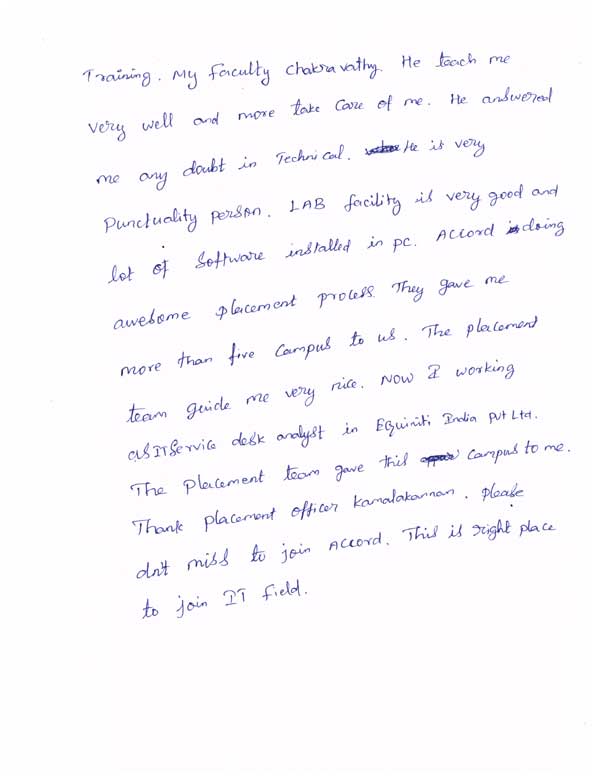 Training. My faculty Chakravathy. He teach me
very well and more take care of me. He answered
me any doubt in Technical. He is very
Punctuality person. LAB facility is very good and
lot of Software installed in pc. Accord doing
awesome placement process. They gave me
more than five Campus to us. The placement
team guide me very nice. Now I working
as IT Service desk analyst in Equiniti India Pvt Ltd.
The Placement team gave this campus to me.
Thank placement officer Kamalakannan. Please
dn't miss to join Accord. This is right place
to join IT field.